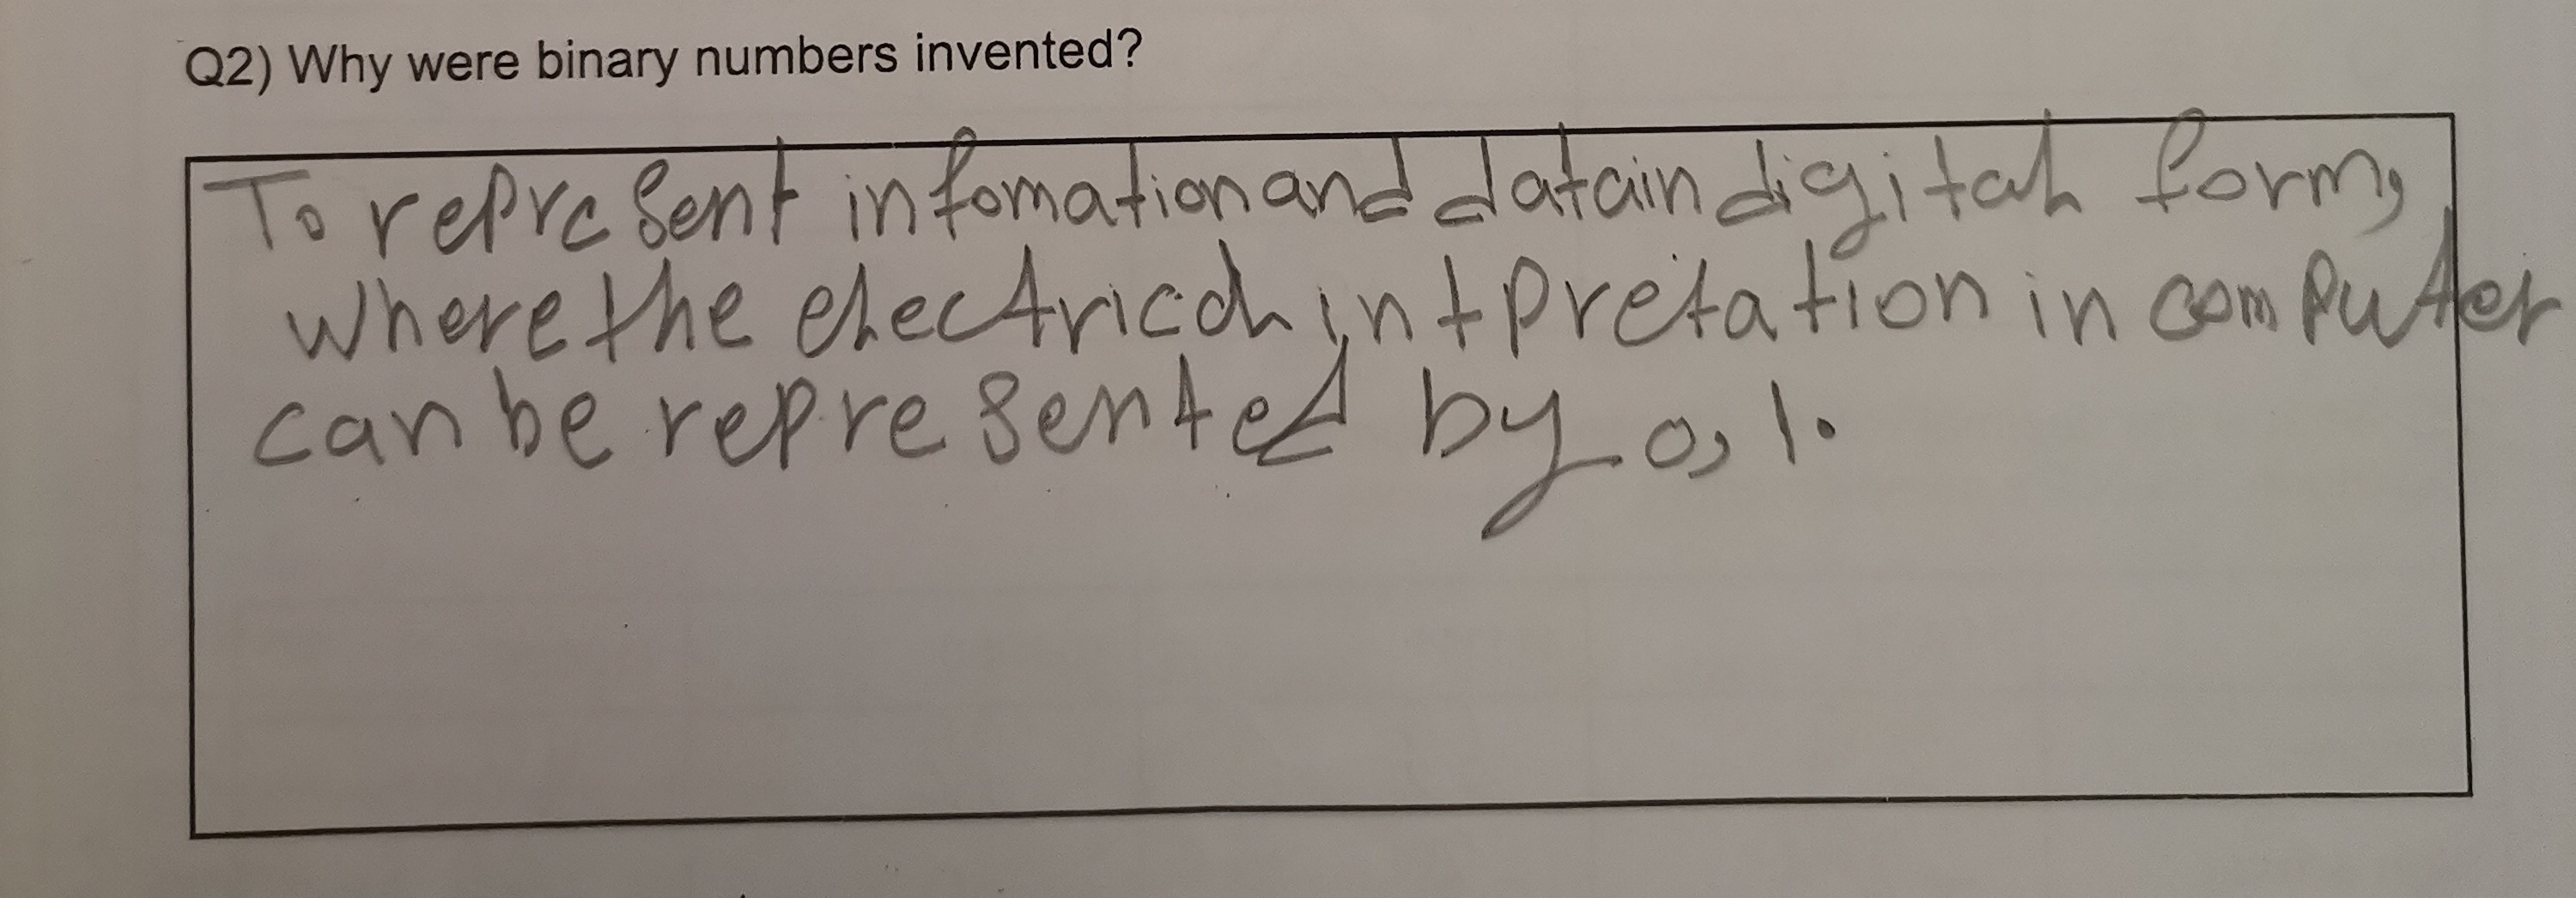 Q2) Why were binary numbers invented?
To represent infomation and data in digital form,
where the electrical intpretation in computer
can be represented by 0, 1.